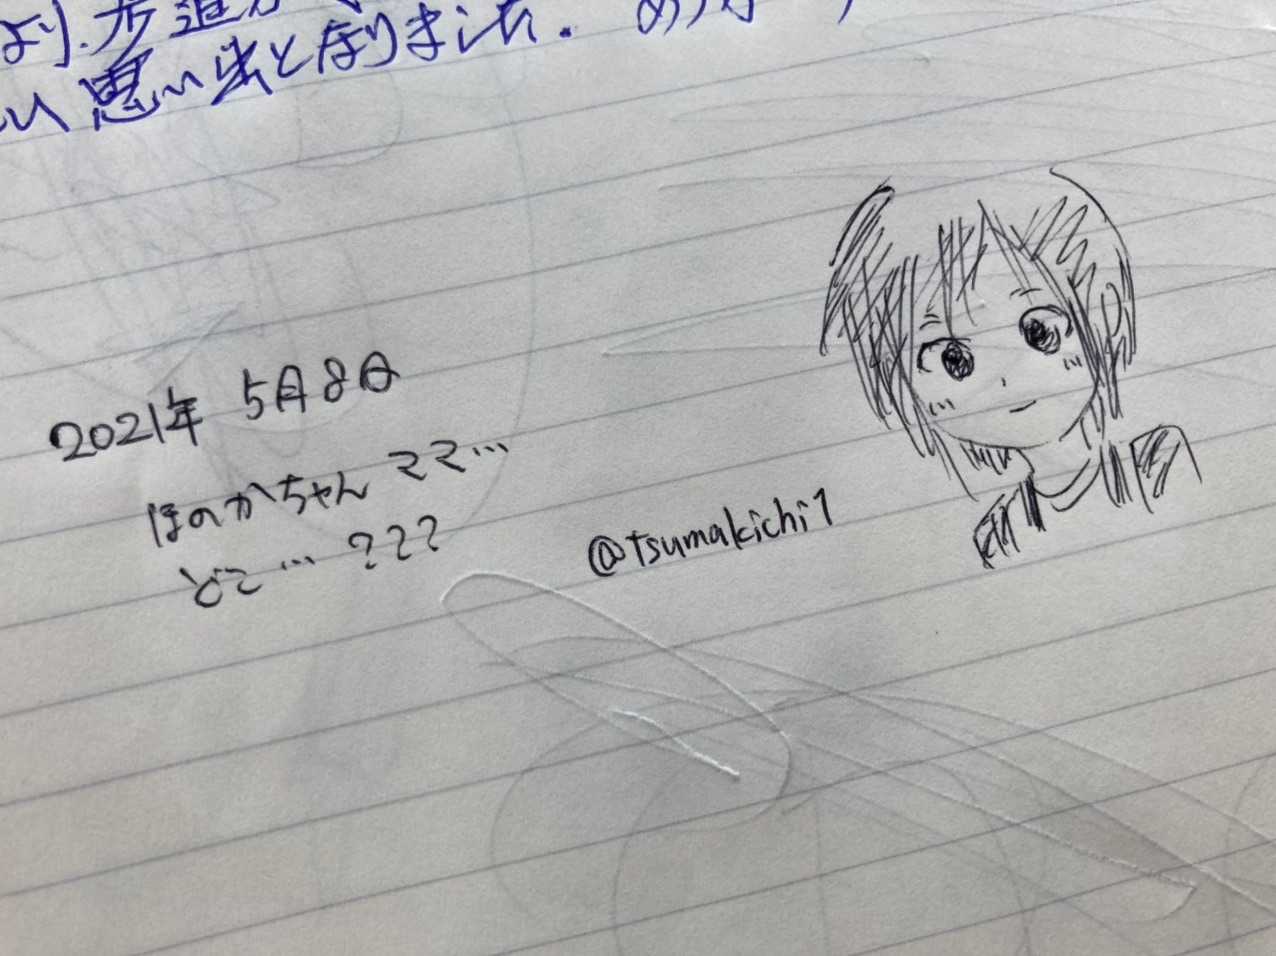 より、歩道
い思い出となりました。
2021年 5月8日
ほのかちゃんママ…
どこ…???
@tsumakichi1